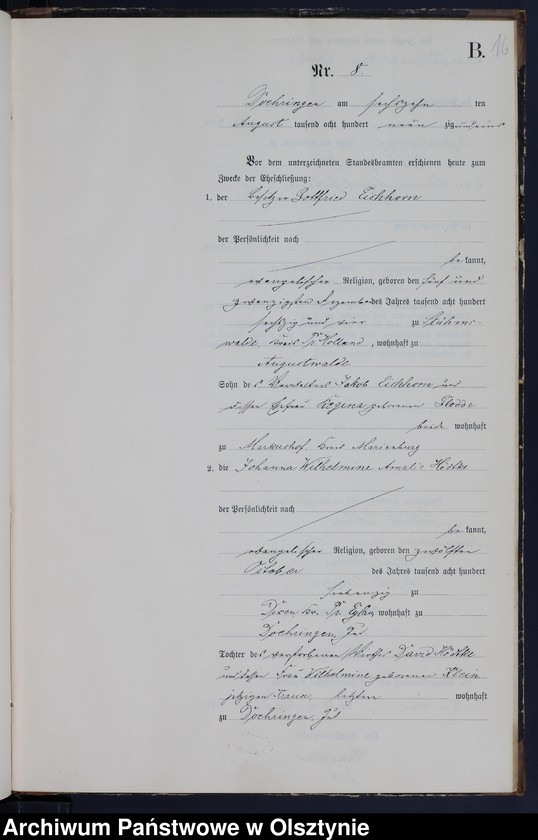 B. 16
Nr. 8.
Doehringen am sechszehn ten
August tausend acht hundert neun zig und eins
Vor dem unterzeichneten Standesbeamten erschienen heute zum
Zwecke der Eheschließung:
1. der Besitzer Gottfried Eichhorn
der Persönlichkeit nach
be kannt,
evangelischer Religion, geboren den fünf und
zwanzigsten Dezember des Jahres tausend acht hundert
sechszig und vier zu
walde, Kreis Pr. Holland, wohnhaft zu
Augustwalde
Sohn des Jakob Eichhorn und
dessen Ehefrau Regina geborenen Flodde
beide wohnhaft
zu Markushof Kreis Marienburg
2. die Johanna Wilhelmine Amalie Hödtke
der Persönlichkeit nach
be kannt,
evangelischer Religion, geboren den zwölften
Oktober des Jahres tausend acht hundert
siebenzig zu
Kr. Pr. Eylau, wohnhaft zu
Doehringen, Gut
Tochter des verstorbenen Wirths David Hödtke
und dessen Frau Wilhelmine geborenen Klein
jetzigen letzten wohnhaft
zu Doehringen, Gut
Archiwum Państwowe w Olsztynie